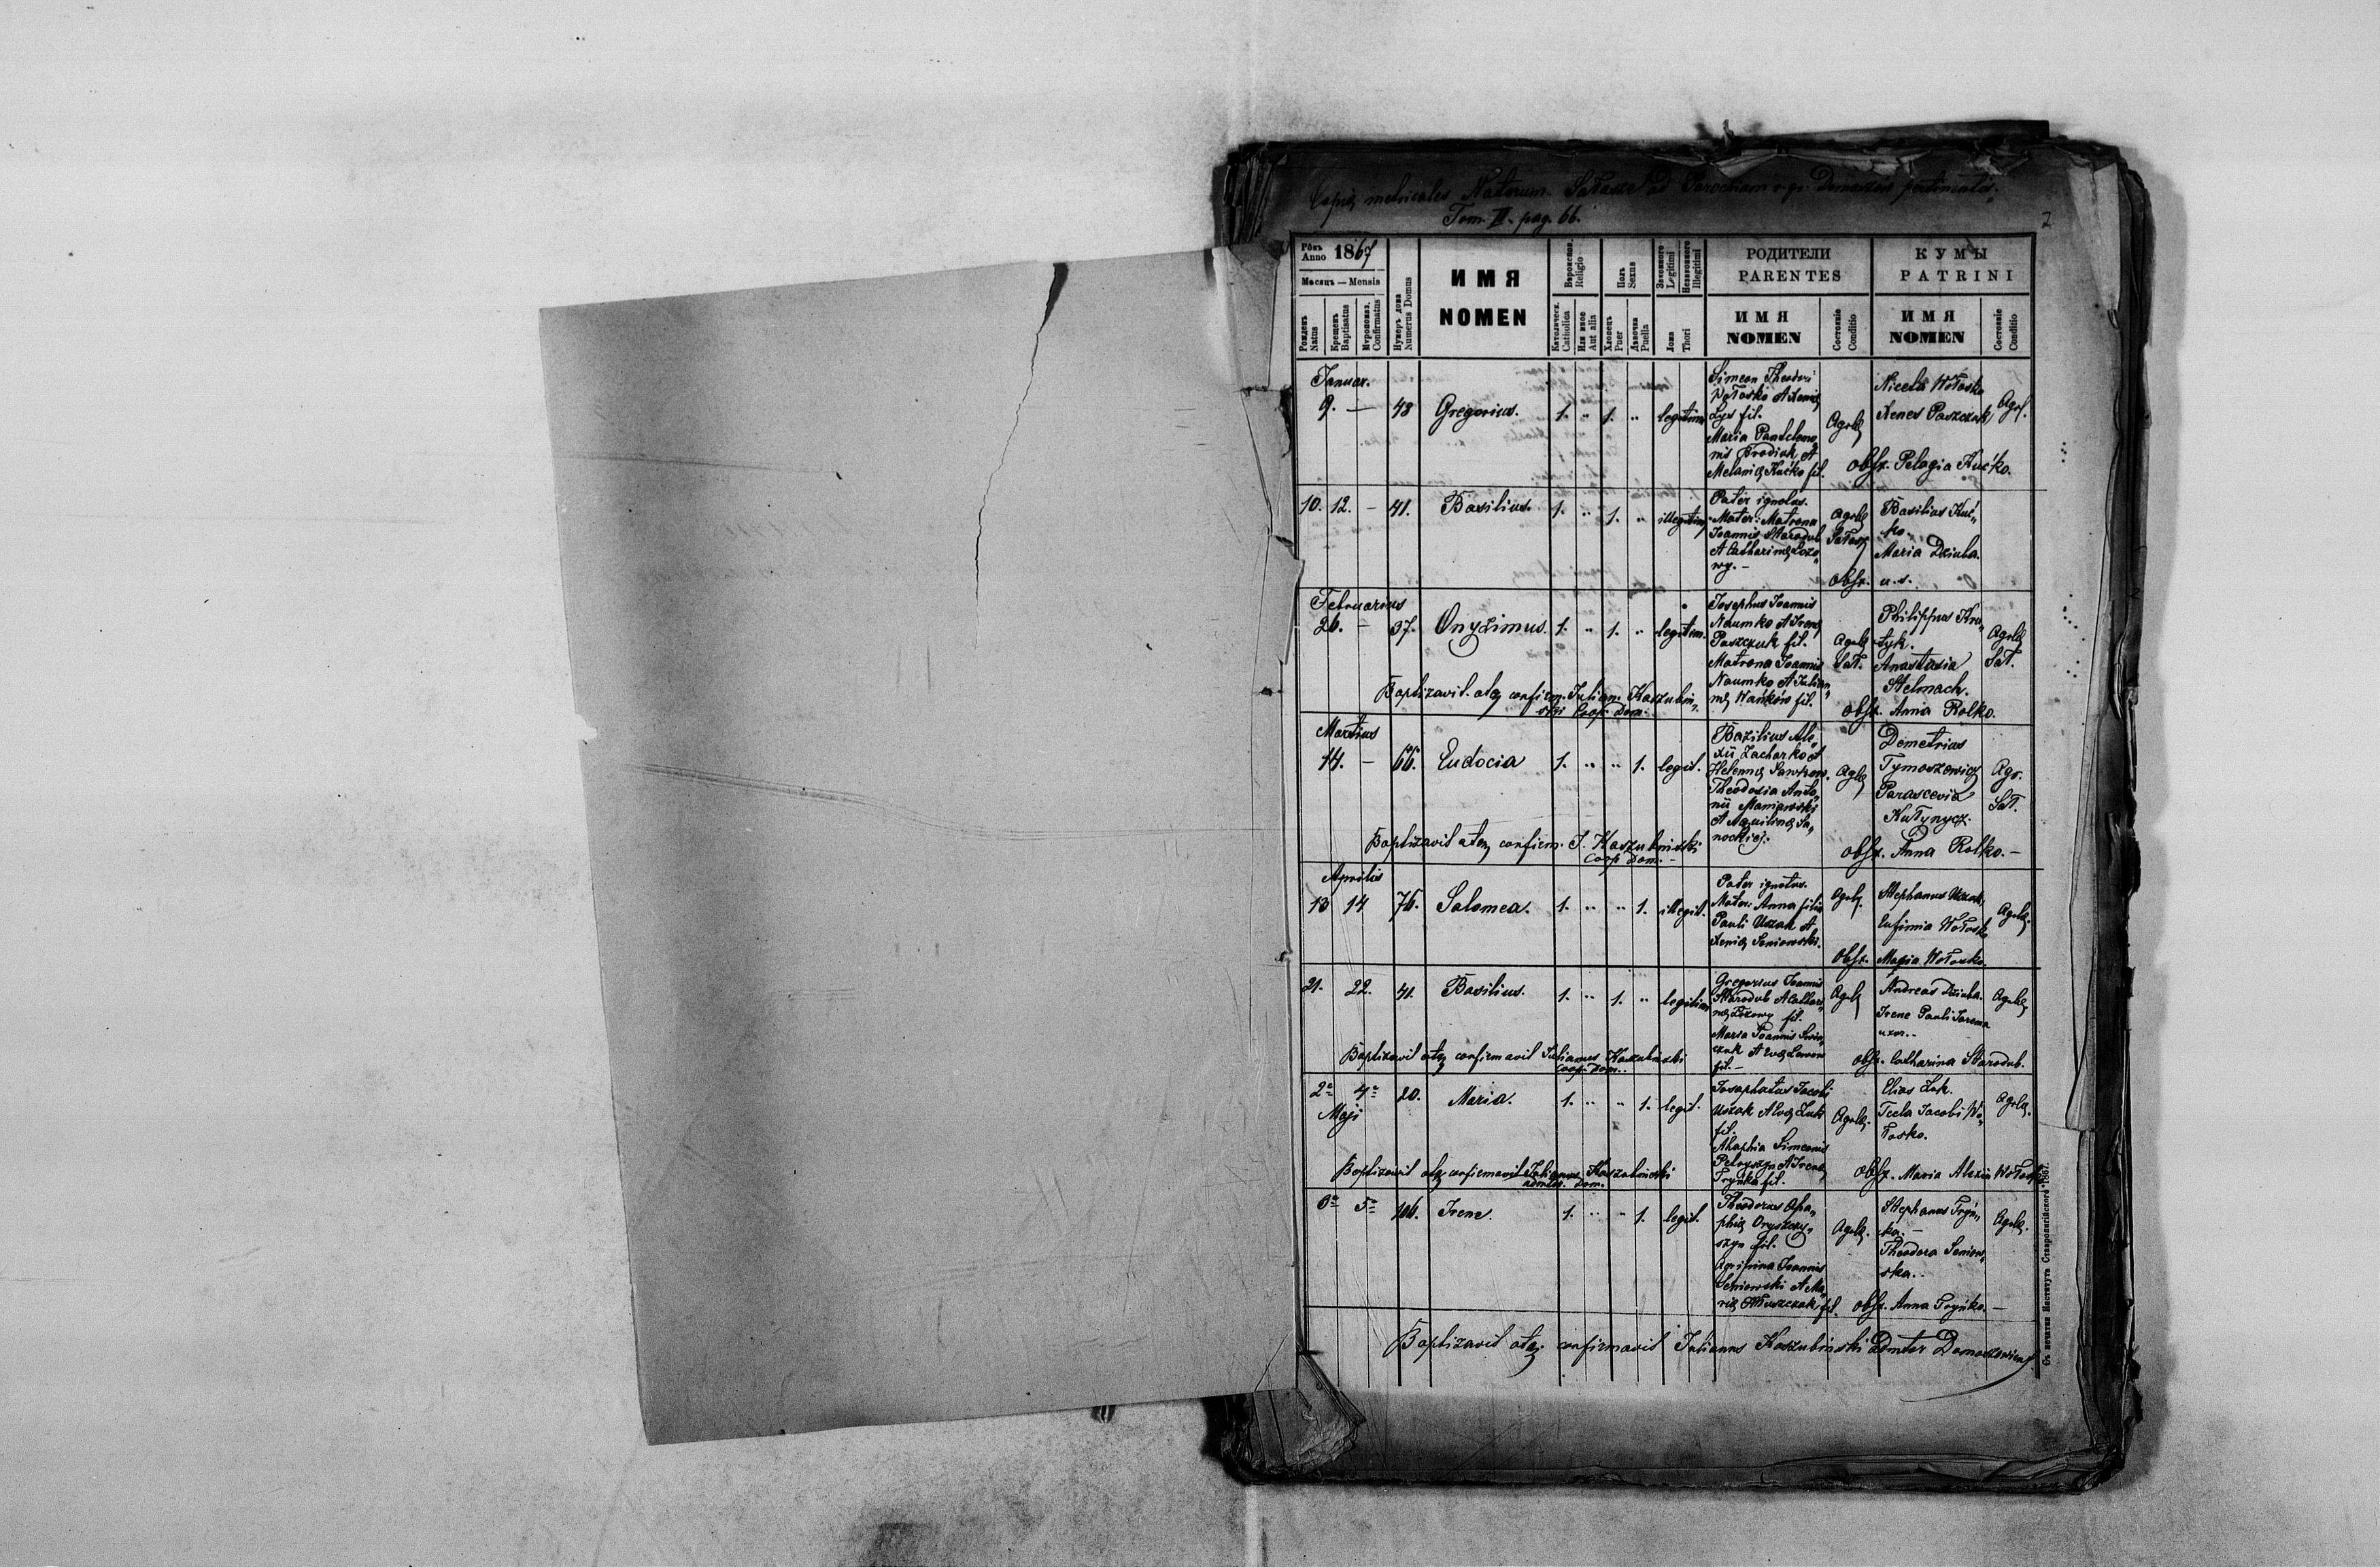 Copia metricales Natorum Sałasze ad Parochiam r. gr. Domaszów pertinentes.
Tom. II. pag. 66.
2
Рôкъ
Anno 1867
Мѣсяцъ — Mensis
Рожденъ
Natus
Крещенъ
Baptisatus
Мѵропомаз.
Confirmatus
Нумеръ дома
Numerus Domus
ИМЯ
NOMEN
Religio
Католическ.
Catholica
Или иное
Aut alia
Полъ
Sexus
Хлопецъ
Puer
Дѣвочка
Puella
Законного
Legitimi
Незаконного
Illegitimi
Ложа
Thori
РОДИТЕЛИ
PARENTES
ИМЯ
NOMEN
Состояніе
Conditio
КУМЫ
PATRINI
ИМЯ
NOMEN
Состояніе
Conditio
Januar.
9. — 48 Gregorius. 1. " 1. " legitim.
Simeon Theodori
Wołosko et Xeniæ
Łys fil.
Maria Pantelemo
nis Brodiak et
Melaniæ Kućko fil.
Agrlæ
Nicetas Wołosko
Xenes Paszczuk
Agrl.
Obst. Pelagia Kućko.
10. 12. — 41. Basilius. 1. " 1. " illegitim.
Pater ignotus.
Mater: Matrona
Joannis Starodub
et Catharinæ Łozo
wy. —
Agrlæ
Sałasz
Basilius Kuć„
ko.
Maria Dziuba.
Obst. u. s.
Februarius
26. — 37. Onyzimus. 1. " 1. " legitim.
Josephus Joannis
Naumko et Irenæ
Paszczuk fil.
Matrona Joannis
Naumko et Julian„
næ Wańków fil.
Agrlæ
Sał.
Philippus Hry„
tyk.
Anastasia
Stelmach.
Agrlæ
Sał.
Obst. Anna Rolko.
Baptizavit atq confirm. Julian. Kaszubin„
ski Coop. Dom.
Martius
14. — 66. Eudocia 1. " " 1. legit.
Bazilius Ale„
xii Zacharko et
Helennæ Sawkow.
Theodosia Anto„
nii Maniawski
et Aquilinæ Sa„
nockiej.
Agrlæ
Demetrius
Tymoszewicz
Parascevia
Kułynycz.
Agr.
Sał.
Obst. Anna Rolko. —
Baptizavit atq confirm. J. Kaszubinski
Coop Dom. —
Aprilis
13 14 76. Salomea. 1. " " 1. illegit.
Pater ignotus.
Mater: Anna filia
Pauli Uszak et
Xeniæ Seniowski.
Agrlæ.
Stephanus Uszak,
Eufimia Wołosko
Agrlæ.
Obst. Maria Wołosko.
21. 22. 41. Basilius. 1. " 1. " legitim.
Gregorius Joannis
Starodub et Cathari„
næ Łozowy fil.
Maria Joannis
fil. —
Agrlæ
Andreas Dziuba.
Irene Pauli Jarema
uxor. .
Agrlæ
Obst. Catharina Starodub.
Baptizavit atq confirmavit Julianus Kaszubinski
Coop. Dom. .
2ª 4ª 20. Maria. 1. " " 1. legit.
Maji
Josaphatus Jacobi
Uszak et Evæ Łuk
fil.
Ahaphia Simeonis
Petryszyn et Irenæ
Tryńka fil.
Agrlæ.
Elias Łuk.
Tecla Jacobi Wo„
łosko.
Agrlæ.
Obst. Maria Alexii Wołosko
Baptizavit atq confirmavit Julianus Kaszubinski
admtor. Dom.
5ª 106. Irene. 1. " " 1. legit.
Theodorus Aha„
phiæ Oryszczy„
szyn fil.
Agripina Joannis
Seniowski et Ma„
riæ fil.
Agrlæ.
Stephanus Tryń„
ko. —
Theodora Seniow„
ska. .
Agrlæ.
Obst. Anna Tryńko. —
Baptizavit atq confirmavit Julianus Kaszubinski Admtor Domaszoviens.
Съ печатни Института Ставропигійского 1867.